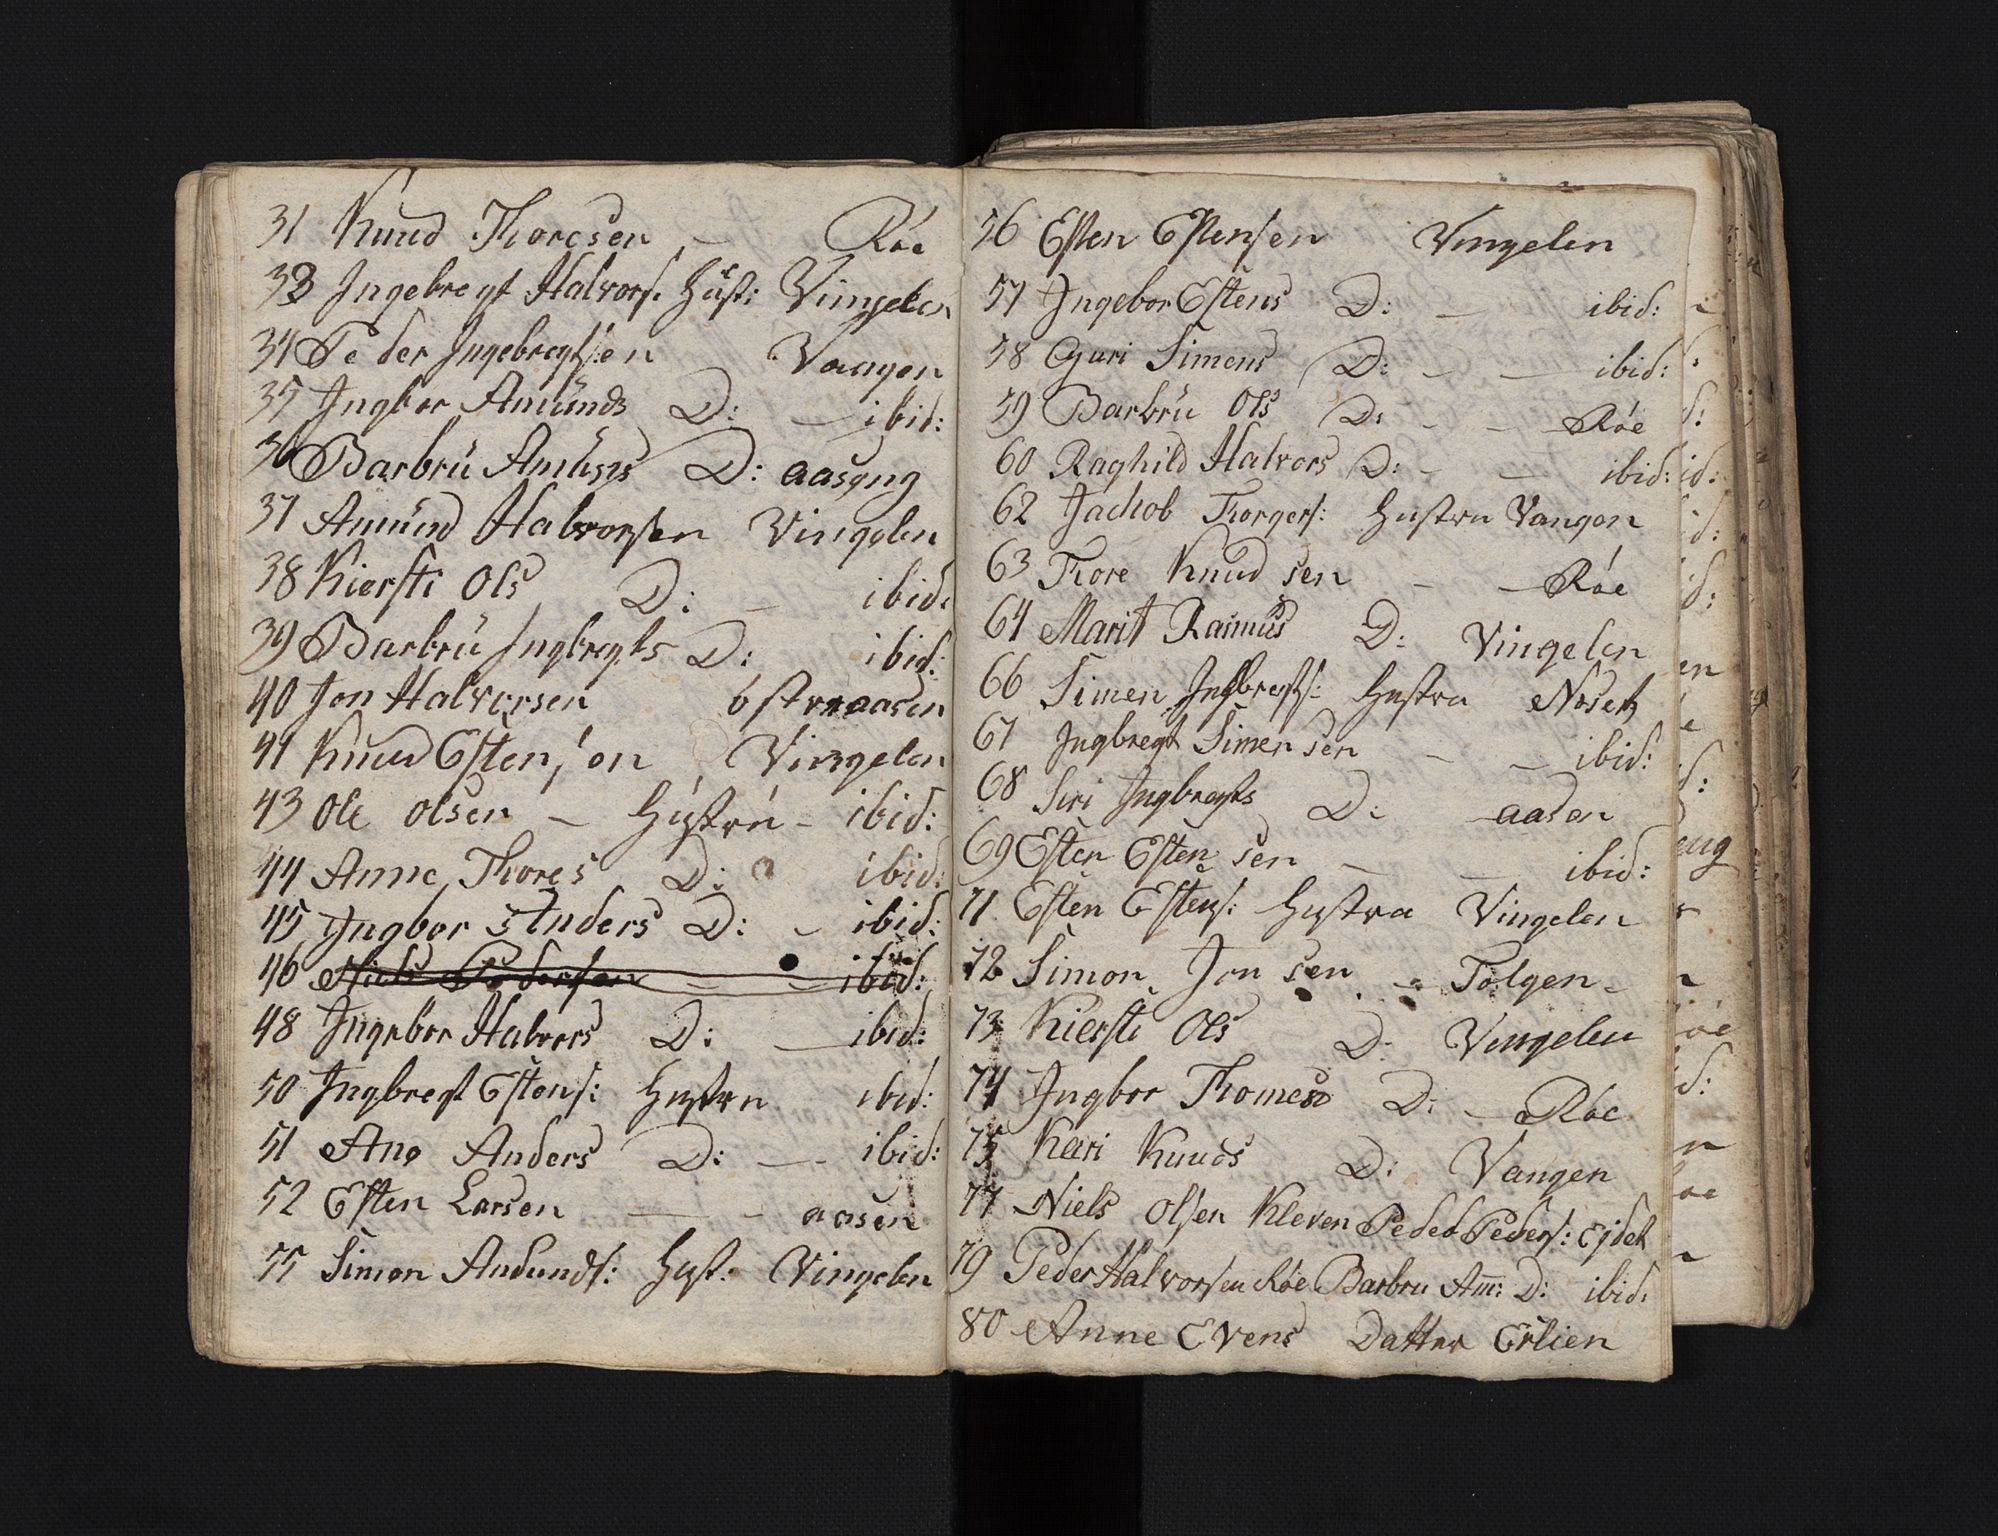 31 Knud Thoresen — Røe
33 Ingebregt Halvors: Hust: Vingelen
34 Peder Ingebregtsen Vangen
35 Ingbor Amunds D: — ibid:
36 Barbru Amunds D: aaseng
37 Amund Halvorsen Vingelen
38 Kiersti Ols D: — ibid:
39 Barbru Ingbregts D: ibid:
40 Jon Halvorsen østreaasen
41 Knud Estensen Vingelen
43 Ole Olsen — Hustru — ibid:
44 Anne Thores D: ibid:
45 Ingbor Anders D: — ibid:
46 Niels Pedersen — — ibid:
48 Ingebor Halvors D: — ibid:
50 Ingbregt Estens: Hustru ibid:
51 Ane Anders D: — ibid:
52 Esten Larsen — — aasen
55 Simon Amunds: Hust: Vingelen
56 Esten Estensen Vingelen
57 Ingebor Estens D: — ibid:
58 Guri Simens D: — — ibid:
59 Barbru Ols D: — — Røe
60 Raghild Halvors D: — — ibid:
62 Jachob Thorgers: Hustru Vangen
63 Thore Knudsen — — Røe
64 Marit Rasmus D: Vingelen
66 Simen Ingbregts: Hustru Noset
67 Ingbregt Simensen — — ibid:
68 Siri Ingbregts D: aasen
69 Esten Estensen — — ibid:
71 Esten Estens: Hustru Vingelen
72 Simon Jonsen — Tolgen
73 Kiersti Ols D: Vingelen
74 Ingbor Thomes D: — Røe
75 Kari Knuds D: Vangen
77 Niels Olsen Kleven Peder Peders: Eidet
79 Peder Halvorsen Røe Barbru Am: D: ibid:
80 Anne Evens Datter Erlien